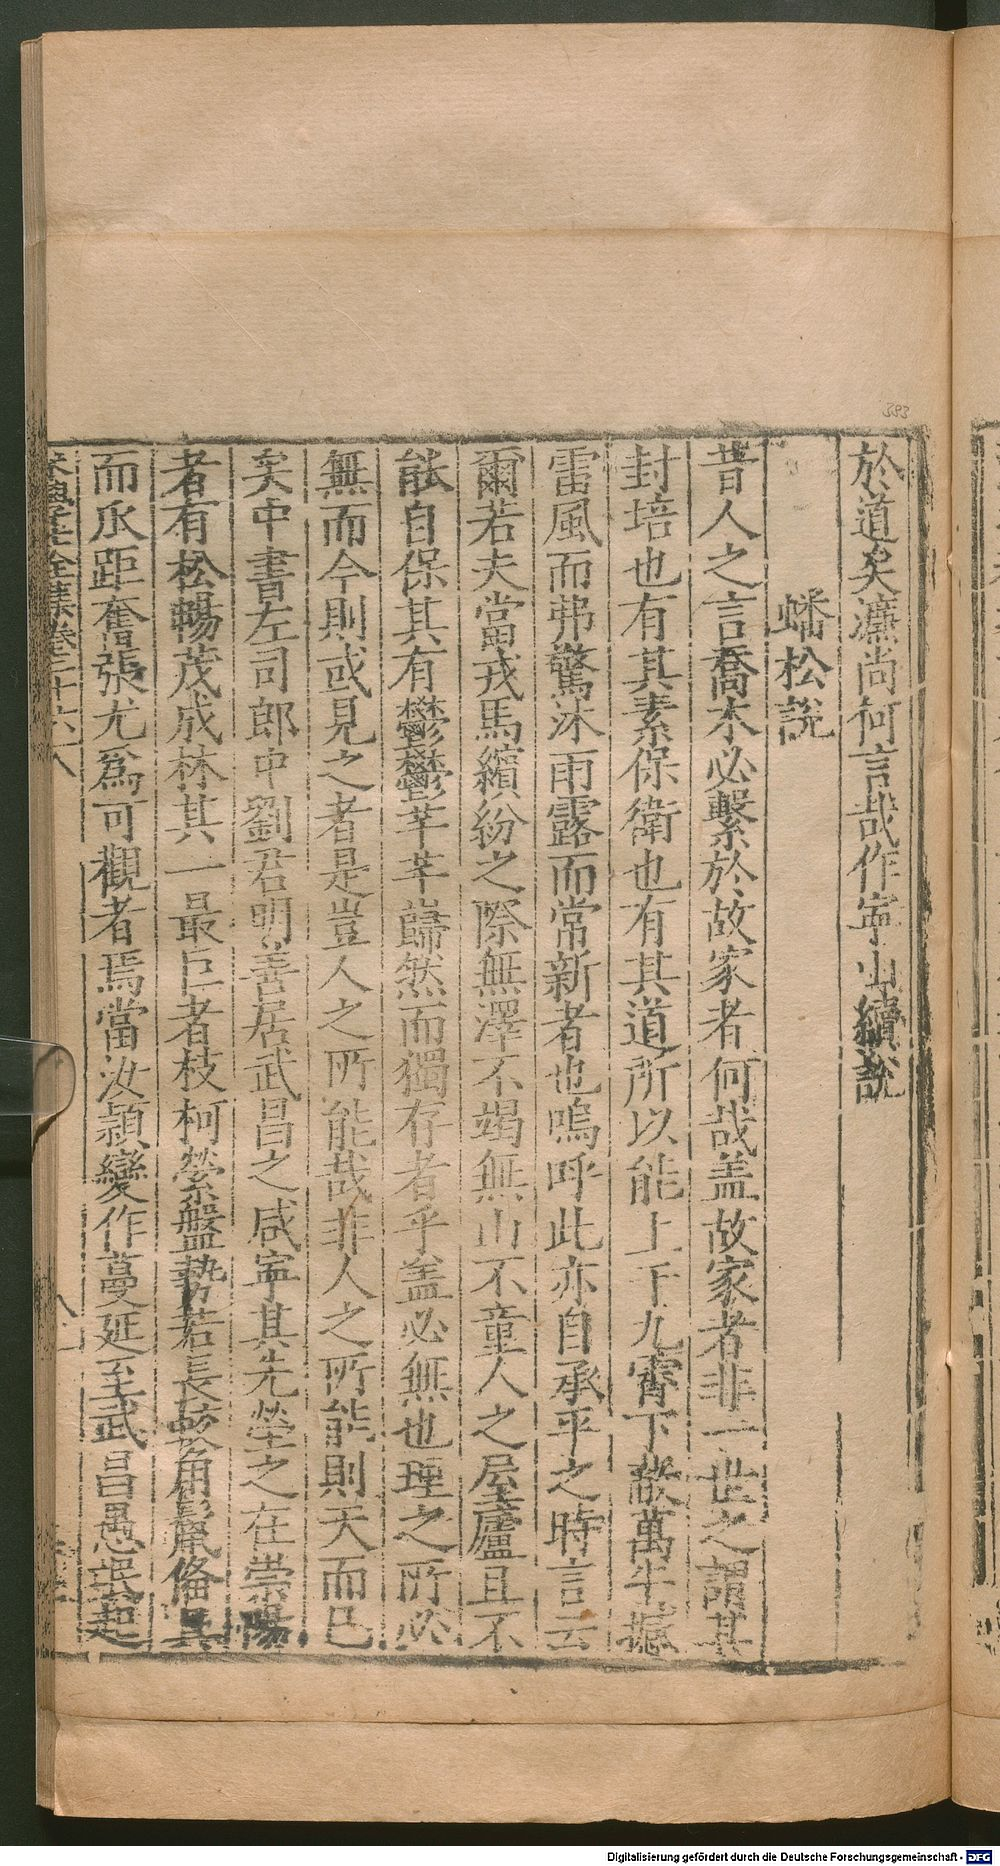 於道矣濂尚何言哉作寜山續說
蟠松說
昔人之言喬木必繫於故家者何哉盖故家者非一世之謂其
封培也有其素保衛也有其道所以能上干九霄下蔽萬牛撼
雷風而弗驚沐雨露而常新者也嗚呼此亦自承平之時言云
爾若夫當戎馬繽紛之際無澤不竭無山不童人之屋廬且不
能自保其有鬱鬱芊芊巋然而獨存者乎盖必無也理之所必
無而今則或見之者是豈人之所能哉非人之所能則天而已
矣中書左司郎中劉君明善居武昌之咸寜其先塋之在崇陽
者有松暢茂成林其一最巨者枝柯縈盤勢若長蛟角鬣俻具
而爪距奮張尤爲可觀者焉當汝潁變作蔓延至武昌愚氓起
宋學士全集卷二十六
383
Digitalisierung gefördert durch die Deutsche Forschungsgemeinschaft - DFG